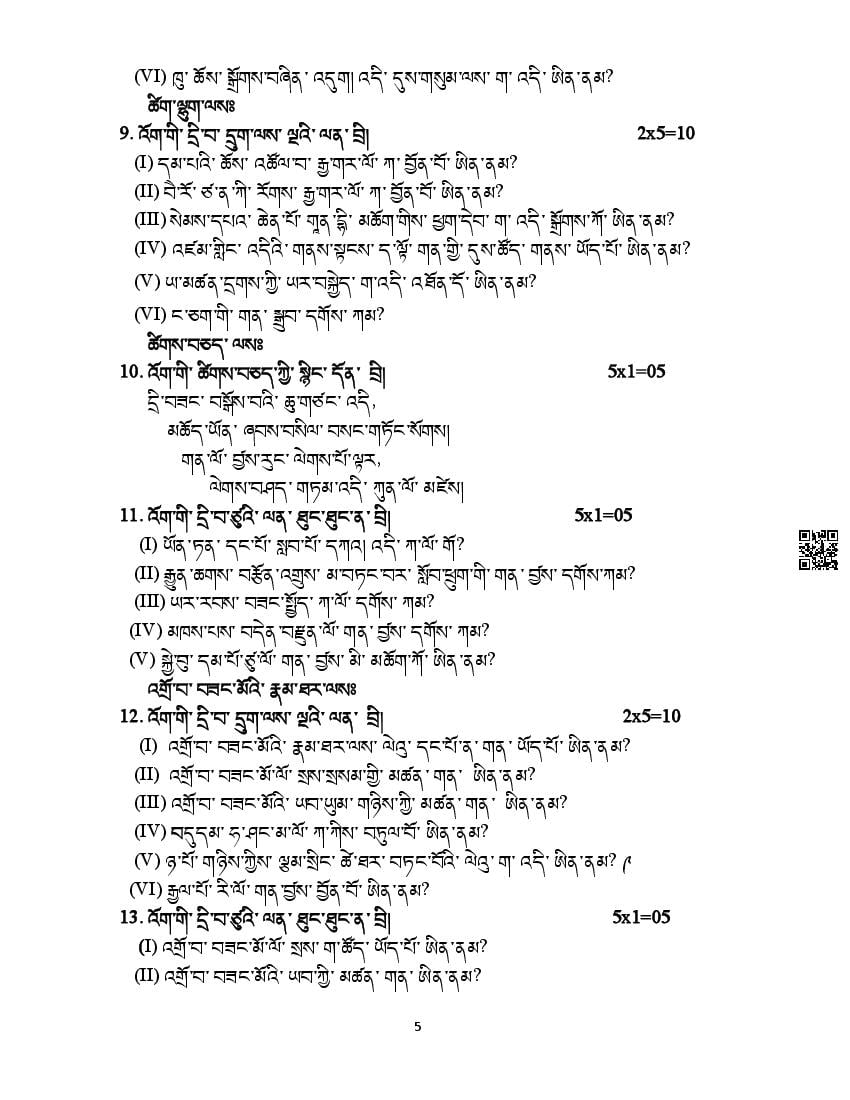 (VI) ཁུ་ ཆོས་ སྒྲོགས་བཞིན་ འདུག། འདི་ དུས་གསུམ་ལས་ ག་ འདི་ ཨིན་ནམ?
ཚིག་ལྷུག་ལས༔
9. འོག་གི་ དྲི་བ་ དྲུག་ལས་ ལྔའི་ ལན་ བྲི། 2x5=10
(I) དམ་པའི་ ཆོས་ འཚོལ་བ་ རྒྱ་གར་ལོ་ ཀ་ བྱོན་བོ་ ཨིན་ནམ?
(II) བེ་རོ་ ཙ་ན་ཀི་ རོགས་ རྒྱ་གར་ལོ་ ཀ་ བྱོན་བོ་ ཨིན་ནམ?
(III) སེམས་དཔའ་ ཆེན་པོ་ གཱན་དྷི་ མཆོག་གིས་ ཕྱག་དེབ་ ག་ འདི་ སྒྲོགས་ཀོ་ ཨིན་ནམ?
(IV) འཛམ་གླིང་ འདིའི་ གནས་སྟངས་ ད་ལྟོ་ གན་གྱི་ དུས་ཚོད་ གནས་ ཡོད་པོ་ ཨིན་ནམ?
(V) ཡ་མཚན་དྲགས་ཀྱི་ ཡར་བསྐྱེད་ ག་འདི་ འཐོན་དོ་ ཨིན་ནམ?
(VI) ང་ཅག་གི་ གན་ སྒྲུབ་ དགོས་ ཀམ?
ཚིགས་བཅད་ ལས༔
10. འོག་གི་ ཚིགས་བཅད་ཀྱི་ སྙིང་ དོན་ བྲི། 5x1=05
དྲི་བཟང་ བསྒོས་བའི་ ཆུ་གཙང་ འདི,
མཆོད་ཡོན་ ཞབས་བསིལ་ བསང་གཏོང་སོགས།
གན་ལོ་ བྱས་རུང་ ལེགས་པོ་ལྟར,
ལེགས་བཤད་ གཏམ་འདི་ ཀུན་ལོ་ མཛེས།
11. འོག་གི་ དྲི་བ་ཙུའི་ ལན་ ཐུང་ཐུང་ན་ བྲི། 5x1=05
(I) ཡོན་ཏན་ དང་པོ་ སླབ་པོ་ དཀའ། འདི་ ཀ་ལོ་ གོ?
(II) རྒྱུན་ཆགས་ བརྩོན་འགྲུས་ མ་བཏང་བར་ སློབ་ཕྲུག་གི་ གན་ བྱས་ དགོས་ཀམ?
(III) ཡར་རབས་ བཟང་སྤྱོད་ ཀ་ལོ་ དགོས་ ཀམ?
(IV) མཁས་པས་ བདེན་བརྫུན་ལོ་ གན་ བྱས་ དགོས་ ཀམ?
(V) སྐྱེ་བུ་ དམ་པོ་ཙུ་ལོ་ གན་ བྱས་ མི་ མཆོག་ཀོ་ ཨིན་ནམ?
འགྲོ་བ་ བཟང་མོའི་ རྣམ་ཐར་ལས༔
12. འོག་གི་ དྲི་བ་ དྲུག་ལས་ ལྔའི་ ལན་ བྲི། 2x5=10
(I) འགྲོ་བ་ བཟང་མོའི་ རྣམ་ཐར་ལས་ ལེའུ་ དང་པོ་ན་ གན་ ཡོད་པོ་ ཨིན་ནམ?
(II) འགྲོ་བ་ བཟང་མོ་ལོ་ སྲས་སྲསམ་གྱི་ མཚན་ གན་ ཨིན་ནམ?
(III) འགྲོ་བ་ བཟང་མོའི་ ཡབ་ཡུམ་ གཉིས་ཀྱི་ མཚན་ གན་ ཨིན་ནམ?
(IV) བདུདམ་ ཧ་ཤང་མ་ལོ་ ཀ་ཀིས་ བཏུལ་བོ་ ཨིན་ནམ?
(V) ཉ་པོ་ གཉིས་ཀྱིས་ ལྕམ་སྲིང་ ཚེ་ཐར་ བཏང་བོའི་ ལེའུ་ ག་ འདི་ ཨིན་ནམ? ༩
(VI) རྒྱལ་པོ་ རི་ལོ་ གན་བྱས་ བྱོན་བོ་ ཨིན་ནམ?
13. འོག་གི་ དྲི་བ་ཙུའི་ ལན་ ཐུང་ཐུང་ན་ བྲི། 5x1=05
(I) འགྲོ་བ་ བཟང་མོ་ལོ་ སྲས་ ག་ཚོད་ ཡོད་པོ་ ཨིན་ནམ?
(II) འགྲོ་བ་ བཟང་མོའི་ ཡབ་ཀྱི་ མཚན་ གན་ ཨིན་ནམ?
5